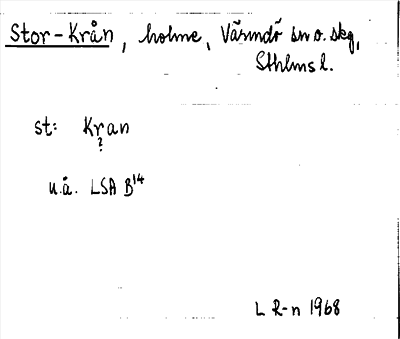 Stor-Krån, holme, Värmdö sn o. skg,
Sthlms l.
st: Kran
?
u.å. LSA B14
L R-n 1968